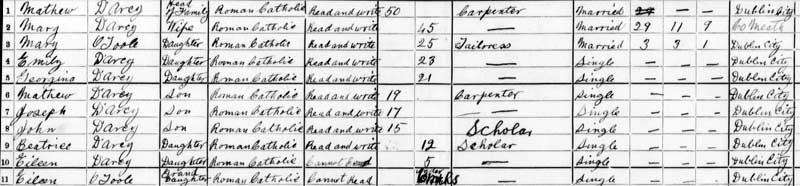 1 Mathew D'arcy Head of Family Roman Catholic Read and write 50 Carpenter Married — — Dublin City
2 Mary D'arcy Wife Roman Catholic Read and write 45 — Married 29 11 9 Co Meath
3 Mary O'Toole Daughter Roman Catholic Read and write 25 Tailoress Married 3 3 1 Dublin City
4 Emily D'arcy Daughter Roman Catholic Read and write 23 — Single — — — Dublin City
5 Georgina D'arcy Daughter Roman Catholic Read and write 21 — Single — — — Dublin City
6 Mathew D'arcy Son Roman Catholic Read and write 19 Carpenter Single — — — Dublin City
7 Joseph D'arcy Son Roman Catholic Read and write 17 — Single — — — Dublin City
8 John D'arcy Son Roman Catholic Read and write 15 Scholar Single — — — Dublin City
9 Beatrice D'arcy Daughter Roman Catholic Read and write 12 Scholar Single — — — Dublin City
10 Eileen D'arcy Daughter Roman Catholic Cannot Read 5 — Single — — — Dublin City
11 Eileen O'Toole Grand Daughter Roman Catholic Cannot Read — Single — — — Dublin City